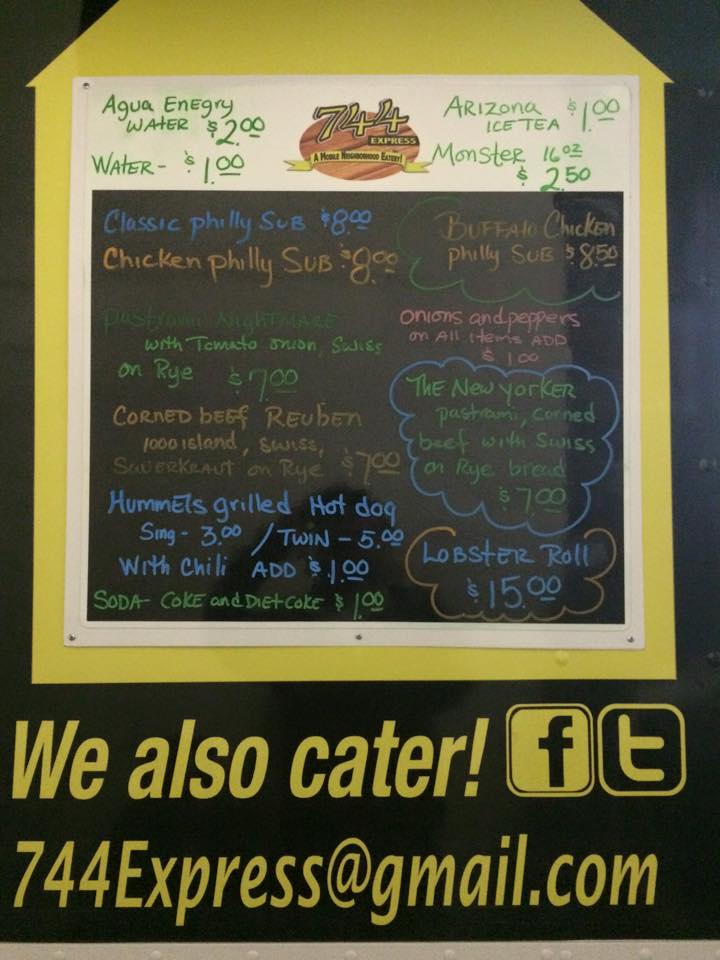 Agua Enegry
WATER $2.00
WATER- $1.00
744
EXPRESS
A MOBILE NEIGHBORHOOD EATERY!
ARIZONA $1.00
ICE TEA
Monster 16oz
$2.50
Classic philly SUB $8.00
Chicken philly SUB $8.00
BUFFALO Chicken
philly SUB $8.50
pastrami NIGHTMARE
with Tomato onion, Swiss
on Rye $7.00
onions and peppers
on All items ADD
$1.00
CORNED BEEF REUBEN
1000 island, Swiss,
SAUERKRAUT on Rye $7.00
THE NEW YORKER
pastrami, corned
beef with Swiss
on Rye bread
$7.00
HUMMELS grilled Hot dog
Sing- 3.00 / TWIN - 5.00
With Chili ADD $1.00
SODA- COKE and DIET COKE $1.00
LOBSTER ROLL
$15.00
We also cater! f t
744Express@gmail.com